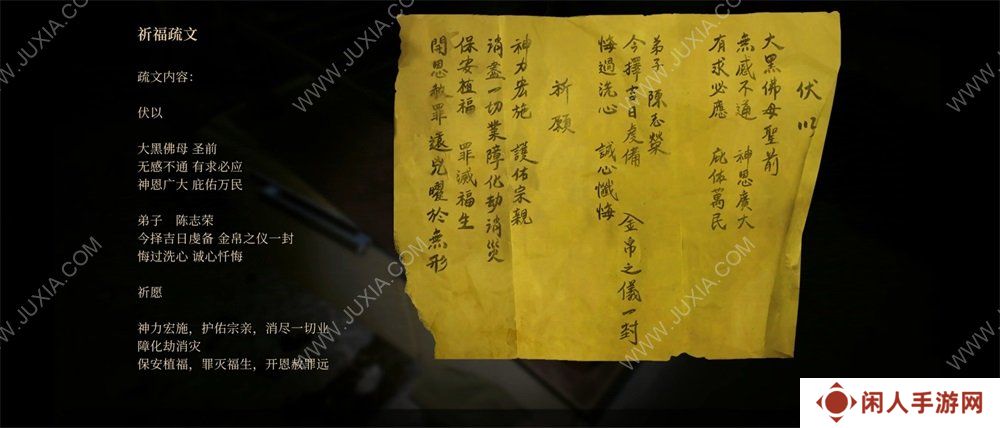 祈福疏文
疏文内容：
伏以
大黑佛母 圣前
无感不通 有求必应
神恩广大 庇佑万民
弟子 陈志荣
今择吉日虔备 金帛之仪一封
悔过洗心 诚心忏悔
祈愿
神力宏施，护佑宗亲，消尽一切业
障化劫消灾
保安植福，罪灭福生，开恩赦罪远
伏以
大黑佛母聖前
無感不通 神恩廣大
有求必應 庇佑萬民
弟子 陳志榮
今擇吉日虔備 金帛之儀一封
悔過洗心 誠心懺悔
祈願
神力宏施 護佑宗親
消盡一切業障化劫消災
保安植福 罪滅福生
開恩赦罪遠兇曜於無形
WWW.JUXIA.COM
WWW.JUXIA.COM
WWW.JUXIA.COM
WWW.JUXIA.COM
WWW.JUXIA.COM
WWW.JUXIA.COM
WWW.JUXIA.COM
WWW.JUXIA.COM
闲人手游网